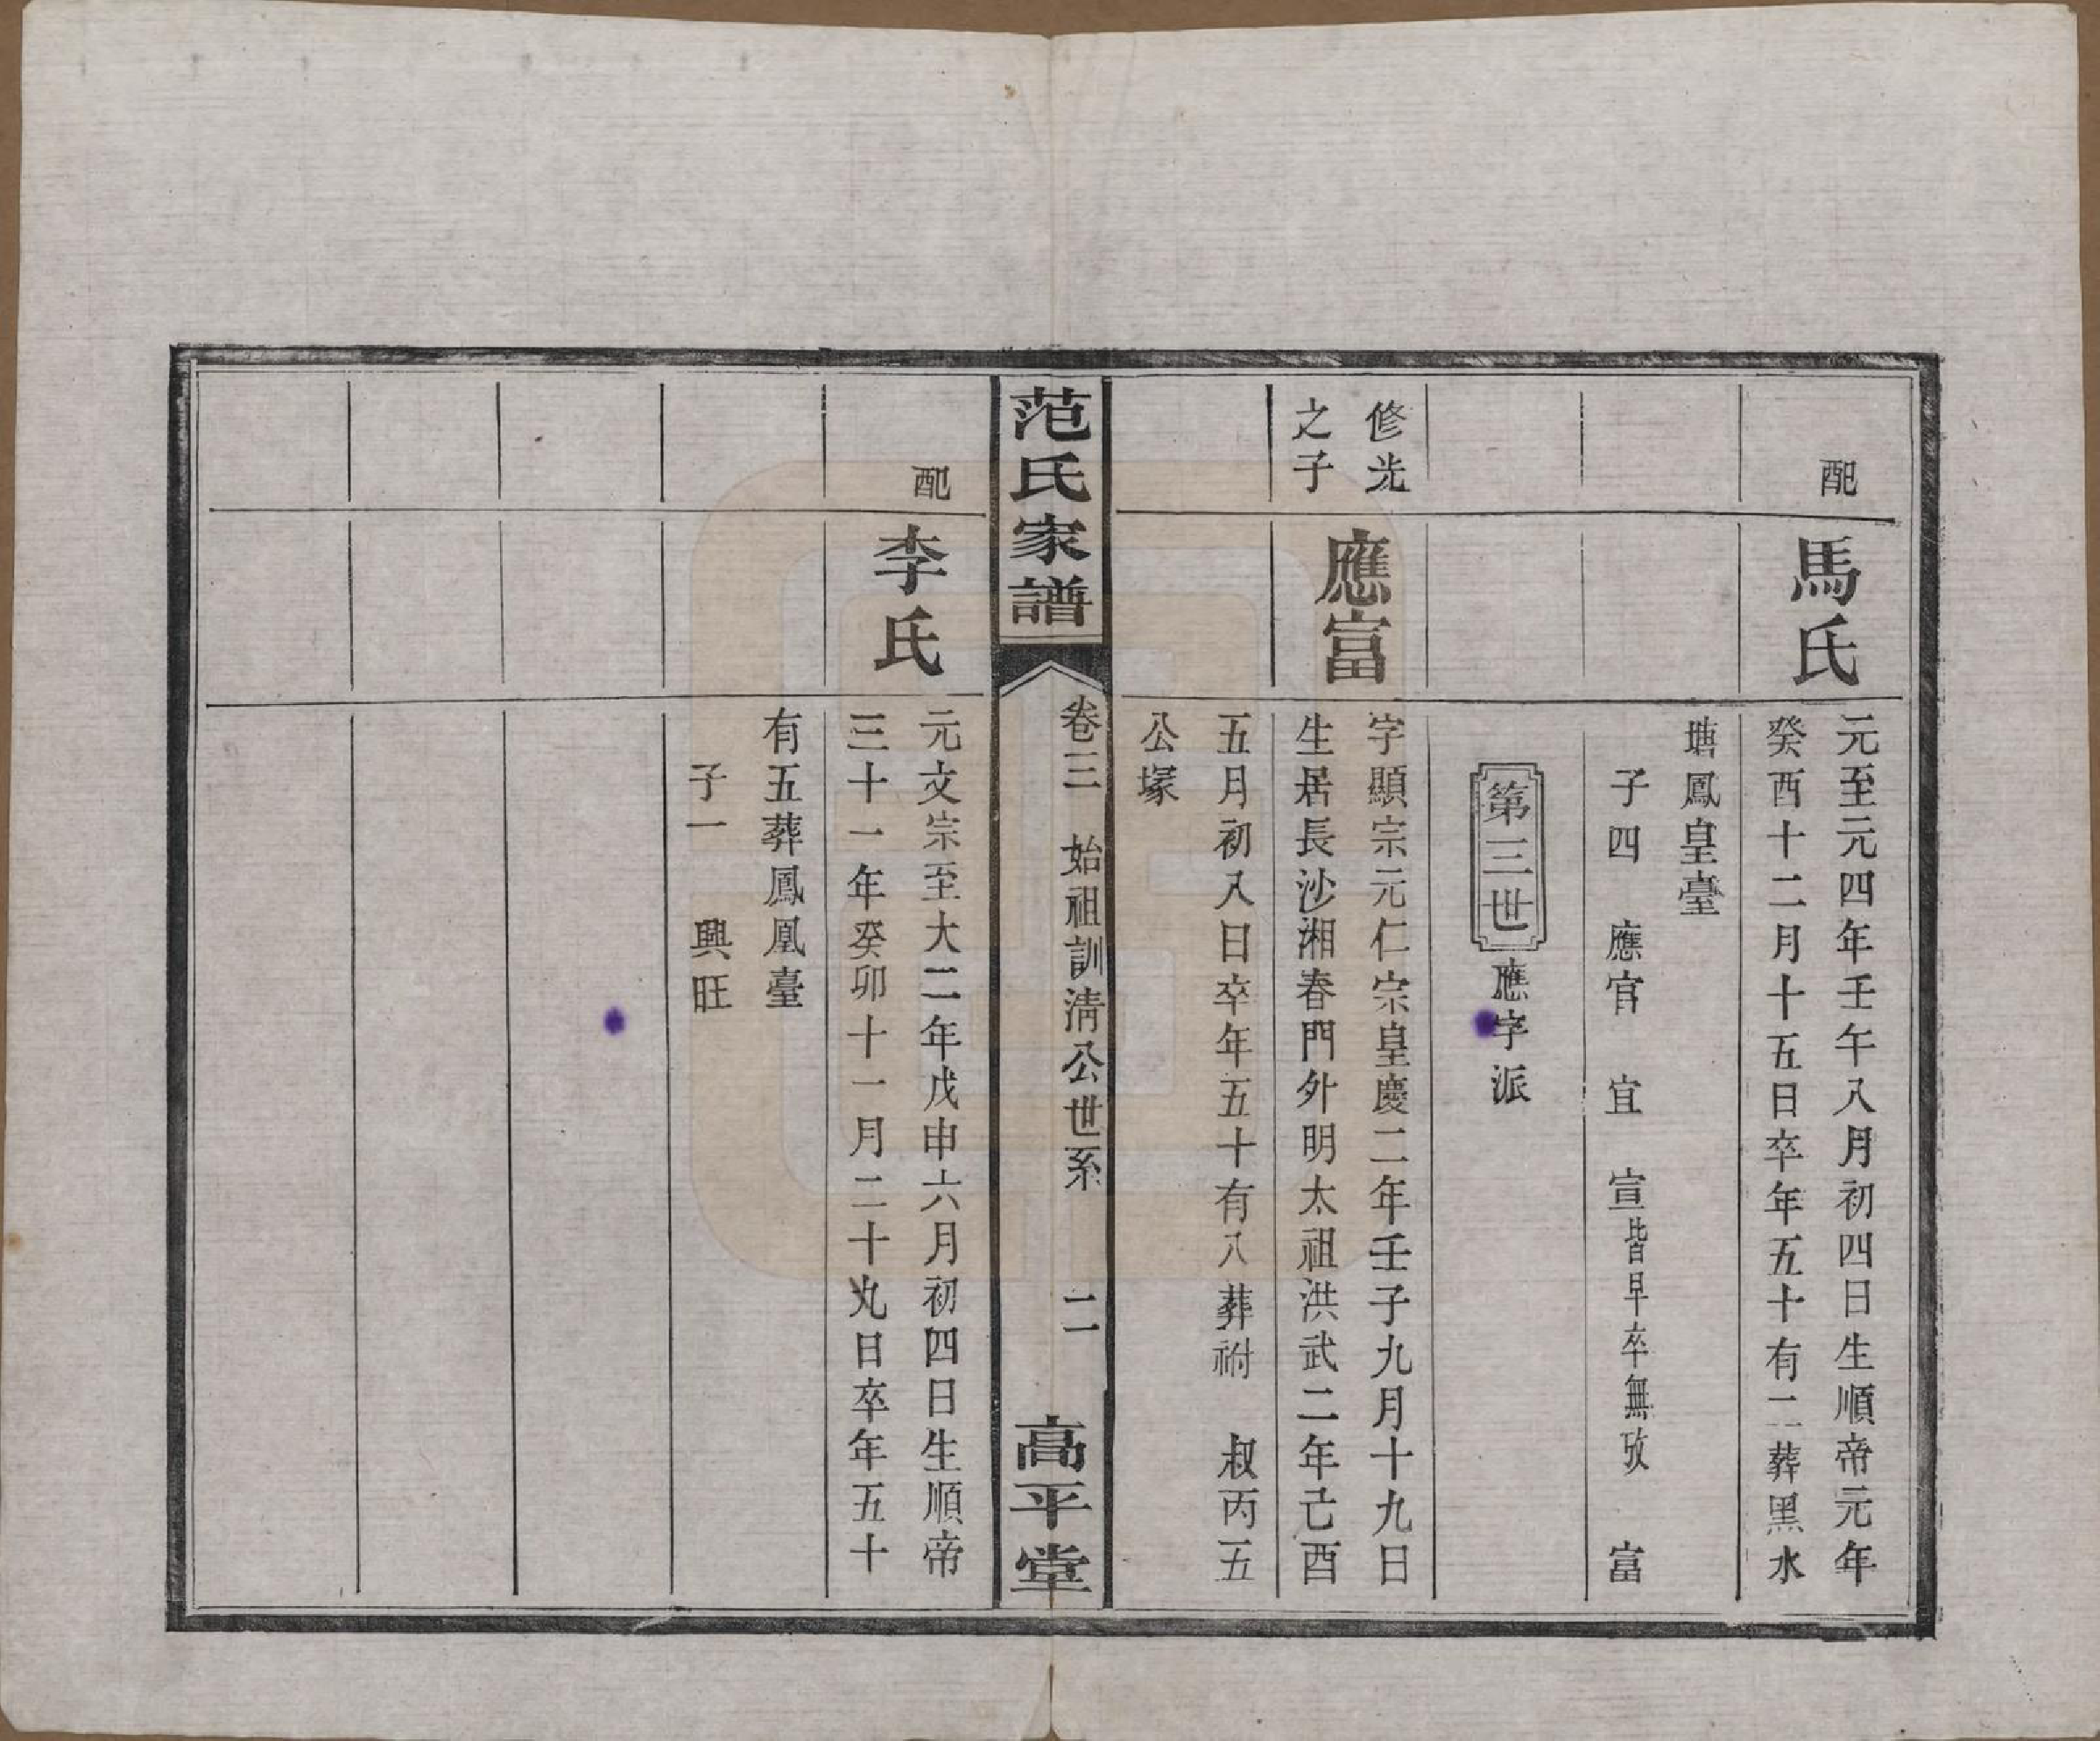 配
馬氏
元至元四年壬午八月初四日生順帝元年
癸酉十二月十五日卒年五十有二葬黑水
塘鳳皇臺
子四 應官 宜 宣皆早卒無攷 富
第三世應字派
修光
之子
應富
字顯宗元仁宗皇慶二年壬子九月十九日
生居長沙湘春門外明太祖洪武二年己酉
五月初八日卒年五十有八葬祔 叔丙五
公塚
范氏家譜
卷三 始祖訓清公世系 二
高平堂
配
李氏
元文宗至大二年戊申六月初四日生順帝
三十一年癸卯十一月二十九日卒年五十
有五葬鳳凰臺
子一 興旺